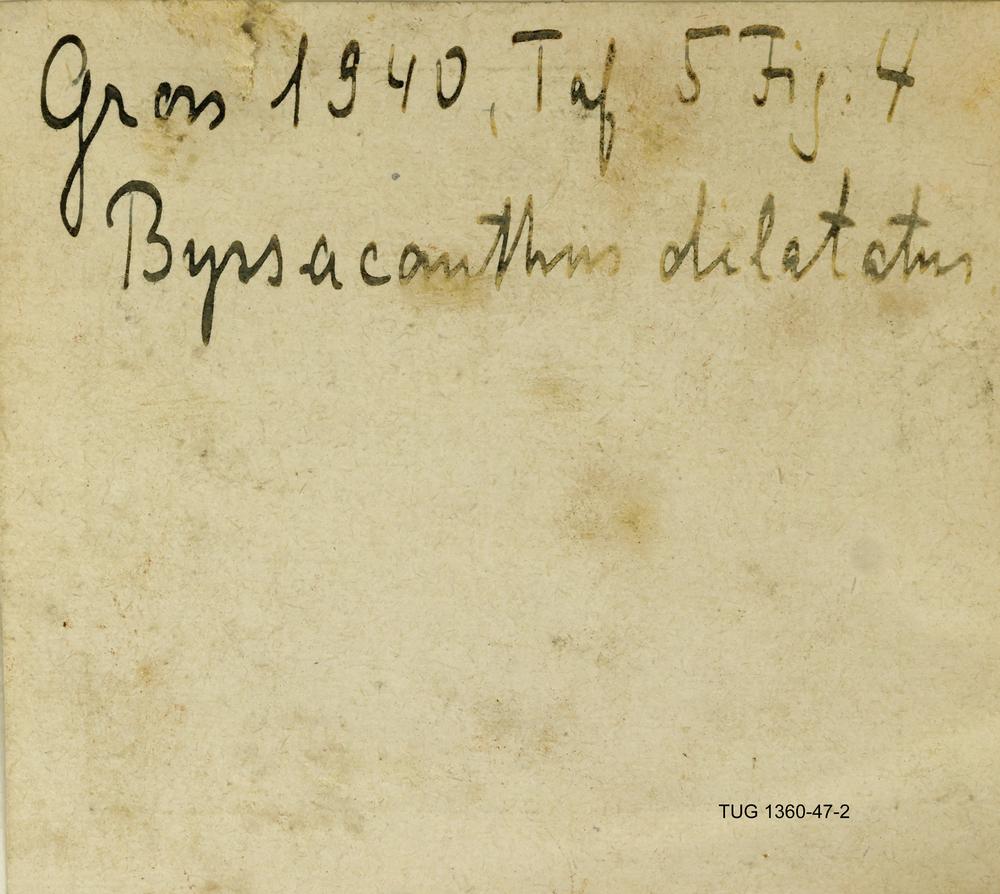 Gross 1940, Taf 5 Fig. 4
Byssacanthus dilatatus
TUG 1360-47-2